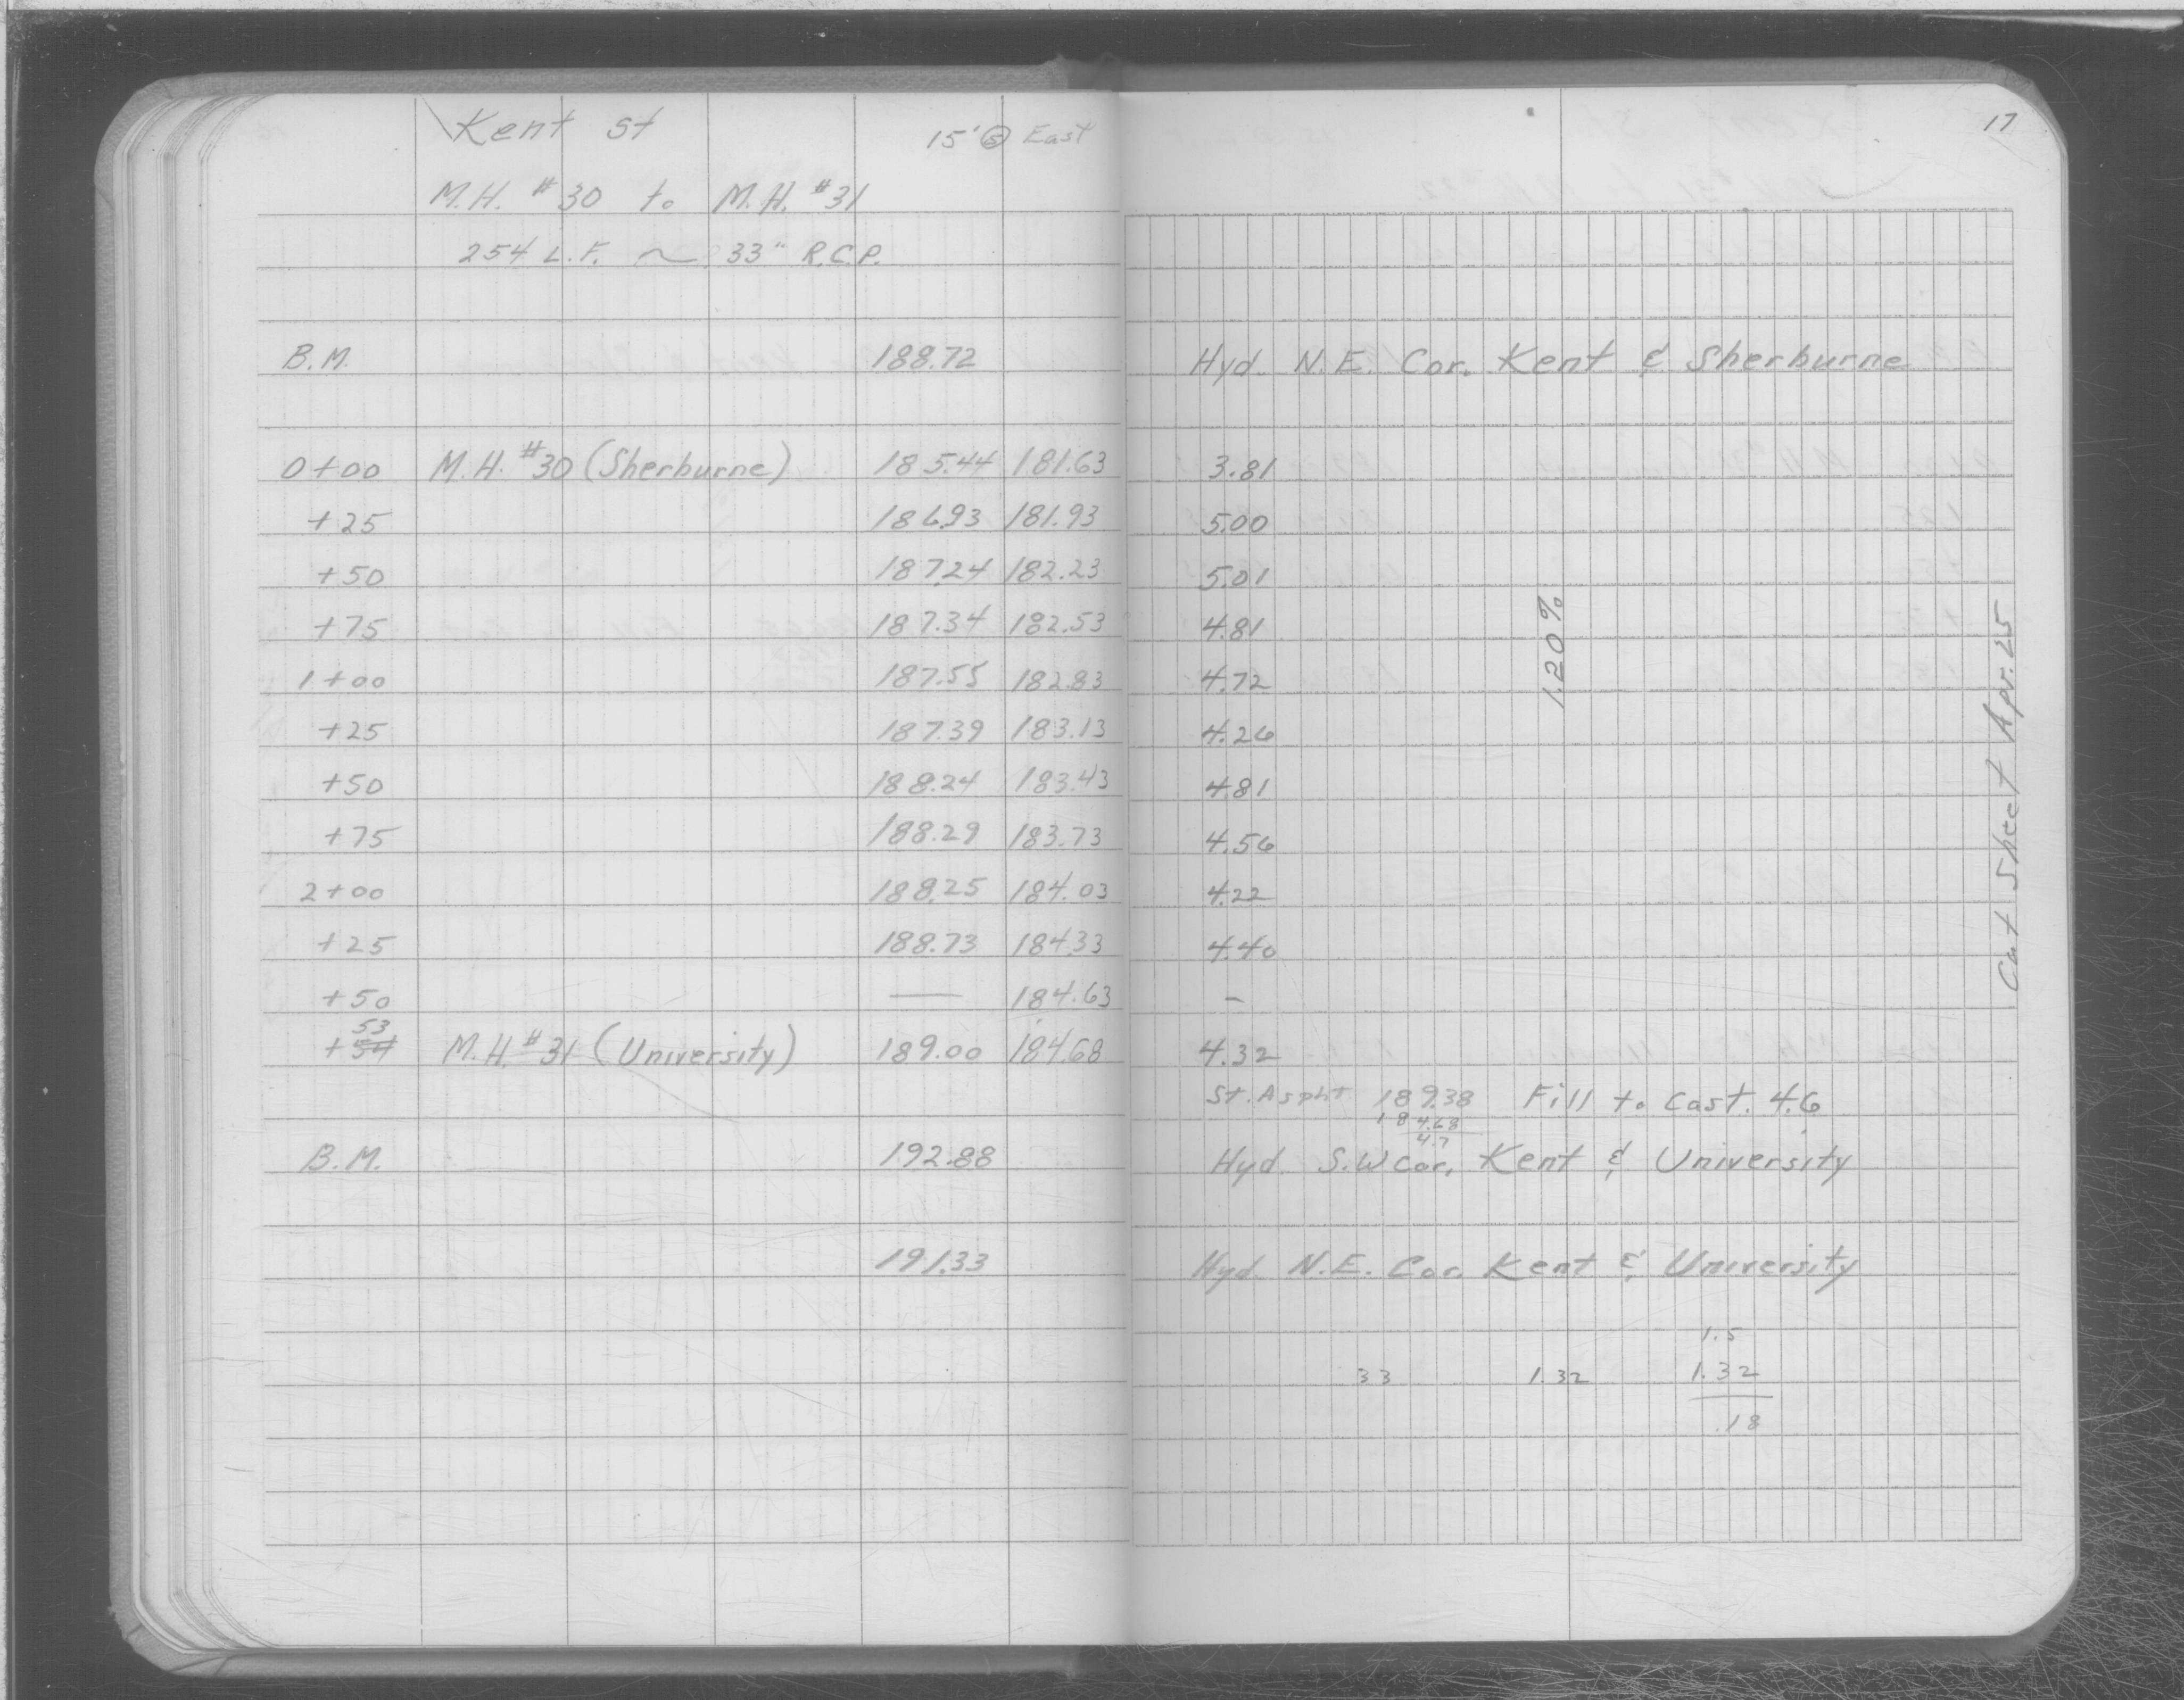 17
Kent St 15' @ East
M.H. #30 to M.H. #31
254 L.F. ~ 33" R.C.P.
B.M. 188.72 Hyd. N.E. Cor. Kent & Sherburne
0+00 M.H. #30 (Sherburne) 185.44 181.63 3.81
+25 186.93 181.93 5.00
+50 187.24 182.23 5.01
+75 187.34 182.53 4.81
1+00 187.55 182.83 4.72
+25 187.39 183.13 4.26
+50 188.24 183.43 4.81
+75 188.29 183.73 4.56
2+00 188.25 184.03 4.22
+25 188.73 184.33 4.40
+50 — 184.63 -
53
+54 M.H. #31 (University) 189.00 184.68 4.32
St. Aspht 189.38 Fill to Cast. 4.6
184.68
4.7
B.M. 192.88 Hyd. S.W Cor. Kent & University
191.33 Hyd. N.E. Cor. Kent & University
1.5
33 1.32 1.32
.18
1.20%
Cut Sheet Apr. 25